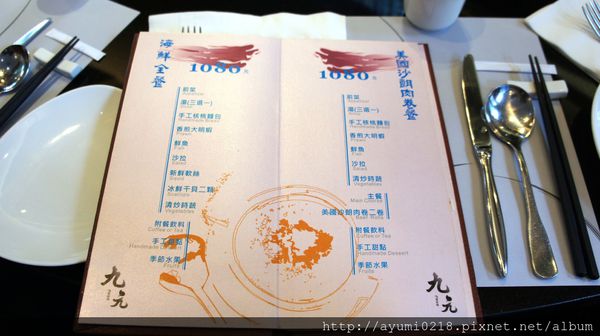 海鮮全餐
1080元
前菜
Appetizer
湯(三選一)
Soup
手工核桃麵包
Handmade Bread
香煎大明蝦
Prawn
鮮魚
Fish
沙拉
Salad
新鮮軟絲
Squid
冰鮮干貝二顆
Scallops
清炒時蔬
Vegetables
附餐飲料
Coffee or Tea
手工甜點
Handmade Dessert
季節水果
Fruits
九元
美國沙朗肉卷餐
1080元
前菜
Appetizer
湯(三選一)
Soup
手工核桃麵包
Handmade Bread
香煎大明蝦
Prawn
鮮魚
Fish
沙拉
Salad
清炒時蔬
Vegetables
主餐
Main Course
美國沙朗肉卷二卷
Beef Rolls
附餐飲料
Coffee or Tea
手工甜點
Handmade Dessert
季節水果
Fruits
九元
http://ayumi0218.pixnet.net/album